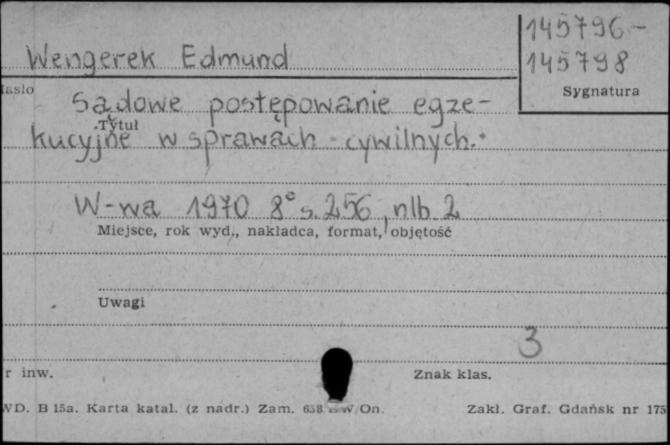 145796-
Wengerek Edmund
145798
asło
Sygnatura
Sądowe postępowanie egze-
Tytuł
kucyjne w sprawach cywilnych.
W-wa 1970 8° s. 256, nlb. 2
Miejsce, rok wyd., nakładca, format, objętość
Uwagi
3
r inw.
Znak klas.
WD. B 15a. Karta katal. (z nadr.) Zam. On.
Zakl. Graf. Gdańsk nr 175